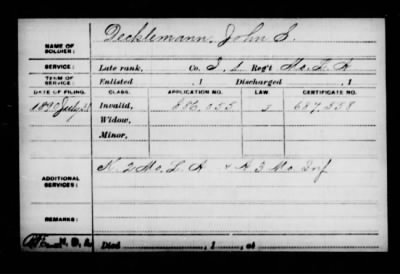 NAME OF SOLDIER: Decklemann, John S.
SERVICE: Late rank, Co. Reg't Mo. L. A.
TERM OF SERVICE: Enlisted , 1 Discharged , 1
DATE OF FILING. CLASS. APPLICATION NO. LAW. CERTIFICATE NO.
1890 July Invalid, 886,055 687,558
Widow,
Minor,
ADDITIONAL SERVICES: K. 2 Mo. L. A. & A 3 Mo. Inf
REMARKS:
Died , 1 , at